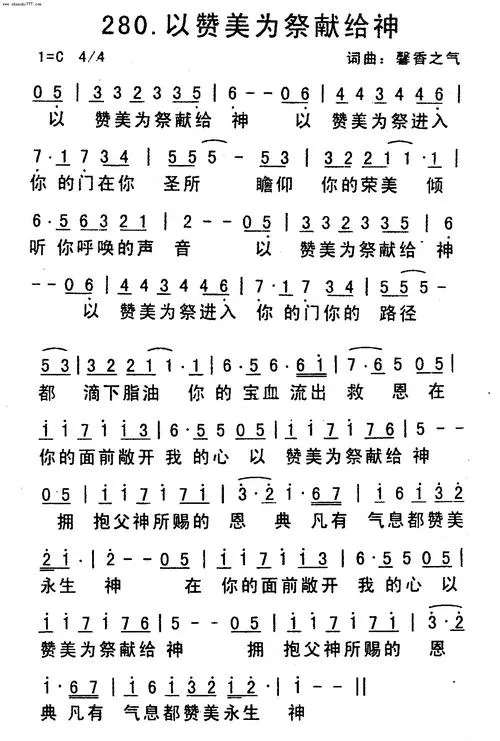 280.以赞美为祭献给神
1=C 4/4 词曲：馨香之气
0 5 | 3 3 2 3 3 5 | 6 - - 0 6 | 4 4 3 4 4 6 |
以 赞美为祭献给 神 以 赞美为祭进入
7 · 1 7 3 4 | 5 5 5 - 5 3 | 3 2 2 1 1 · 1 |
你 的门在你 圣所 瞻仰 你的荣美 倾
6 · 5 6 3 2 1 | 2 - - 0 5 | 3 3 2 3 3 5 | 6
听 你呼唤的声 音 以 赞美为祭献给 神
- - 0 6 | 4 4 3 4 4 6 | 7 · 1 7 3 4 | 5 5 5 -
以 赞美为祭进入 你 的门你的 路径
5 3 | 3 2 2 1 1 · 1 | 6 · 5 6 · 6 i | 7 · 6 5 0 5 |
都 滴下脂油 你 的 宝血 流出 救 恩 在
i i 7 i i 3 | 6 · 5 5 0 5 | i i 7 i 7 6 | 5 - -
你的面前敞开 我 的心 以 赞美为祭献给神
0 5 | i i 7 i i 7 | 3 · 2 i · 6 7 | i 6 i 3 2
拥 抱父神所赐的 恩 典 凡有 气息都赞美
2 i · | 2 - - 0 5 | i i 7 i i 3 | 6 · 5 5 0 5 |
永生 神 在 你的面前敞开 我 的心 以
i i 7 i 7 6 | 5 - - 0 5 | i i 7 i i 7 | 3 · 2
赞美为祭献给 神 拥 抱父神所赐的 恩
i · 6 7 | i 6 i 3 2 i 2 · | i - - ||
典 凡有 气息都赞美永生 神